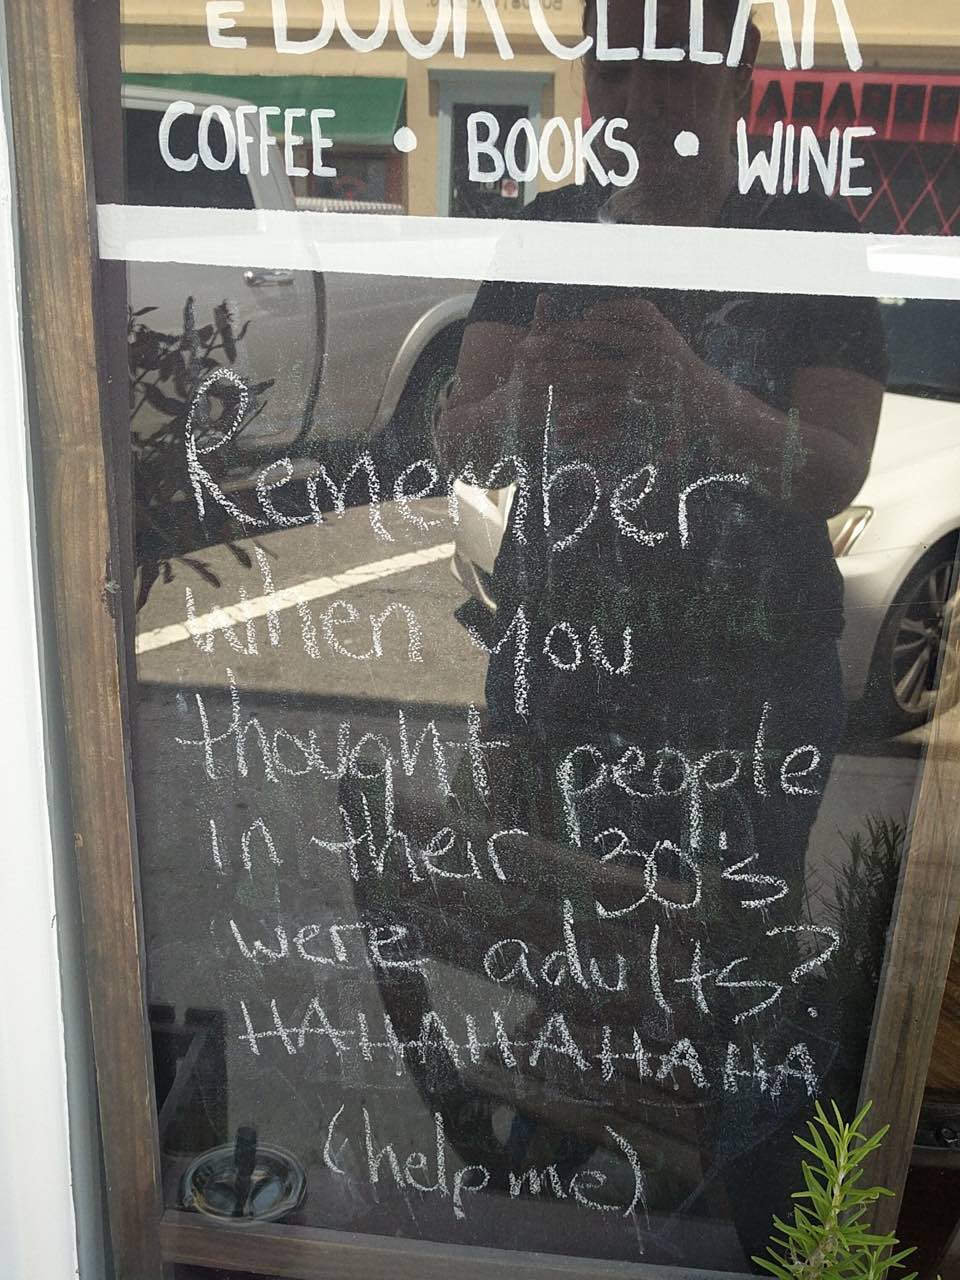 E BOOK CELLAR
COFFEE • BOOKS • WINE
Remember
when you
thought people
in their 30's
were adults?
HAHAHAHAHAHA
(help me)